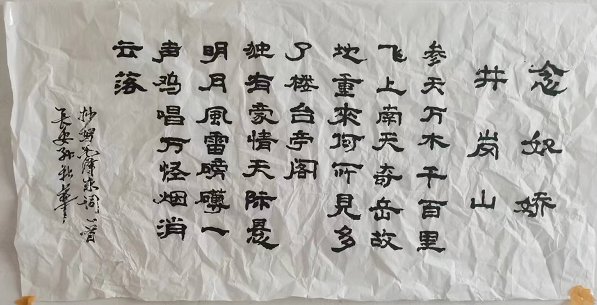 念奴娇
井岗山
参天万木千百里
飞上南天奇岳故
地重來何所见多
了楼台亭阁
独有豪情天际悬
明月風雷磅礴一
声鸡唱万怪烟消
云落
抄毛泽东词一首
长安孙